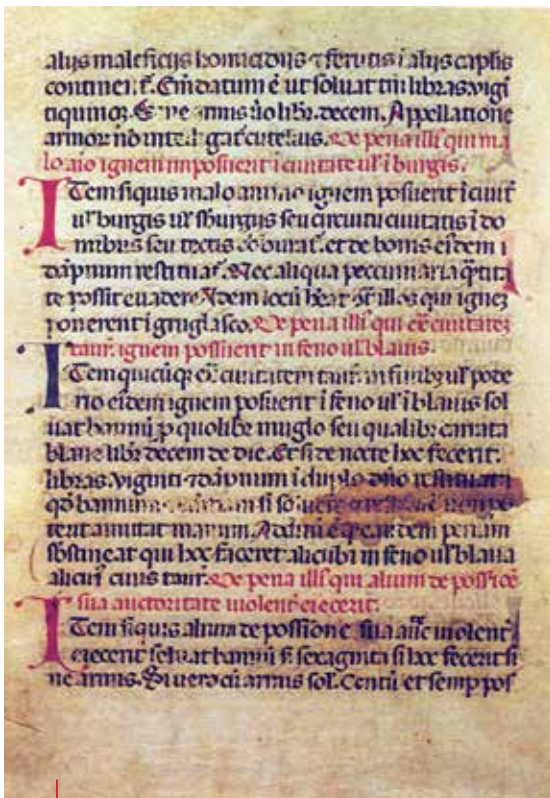 alijs maleficijs homicidijs ⁊ ferutis i alijs caplis
continet᷑. Em̄datum ē ut soluat tm̄ libras. vigi
tiquinq᷒. Et sine armis ũo libr̄. decem. Appellatione
armor nō intelligāt cutellus. De pena illi᷑ qui ma
lo aīo ignem imposuerit i ciuitate ul᷑ i burgis.
Item siquis malo animo ignem posuerit i ciuit᷑
ul᷑ burgis ul᷑ sb̄urgijs seu circuitu ciuitatis i do
mibus seu tectis cōburat᷑. et de bonis eisdem i
dāpnum restituat᷑. Nec aliqua peccuniaria q̄tita
te possit euadere. Idem locū hēat sr̄ illos qui ignez
ponerent i gruglasco. De pena illi᷑ qui ex᷑ ciuitatez
taur᷑. ignem posuerit in feno ul᷑ blauis.
Item quicūq᷒ ex᷑ ciuitatem taur᷑. in finib᷒ ul᷑ pode
rio eisdem ignem posuerit i feno ul᷑ i blauis sol
uat bannū p̱ quolib᷒ muglo seu qualib᷒ carrata
blaue libr̄ decem de die. Et si de nocte hoc fecerit.
libras. viginti ⁊ dāpnum i duplo dn̄o restituat ⁊
qd̄ bannum si soluere nō po
terit amittat manum. eandem penam
sb̄stineat qui hoc faceret alicubi in feno ul᷑ blaua
alicui᷒ ciuis taur᷑. De pena illi᷑ qui alium de poss̄ioē
sua auctoritate uiolent᷑ eiecerit.
Item siquis alium de poss̄ione sua auc̄te uiolent᷑
eiecerit soluat bannū sl̄. sexaginta si hoc fecerit si
ne armis. Si uero cū armis sol᷑. Centū et semp̱ pos